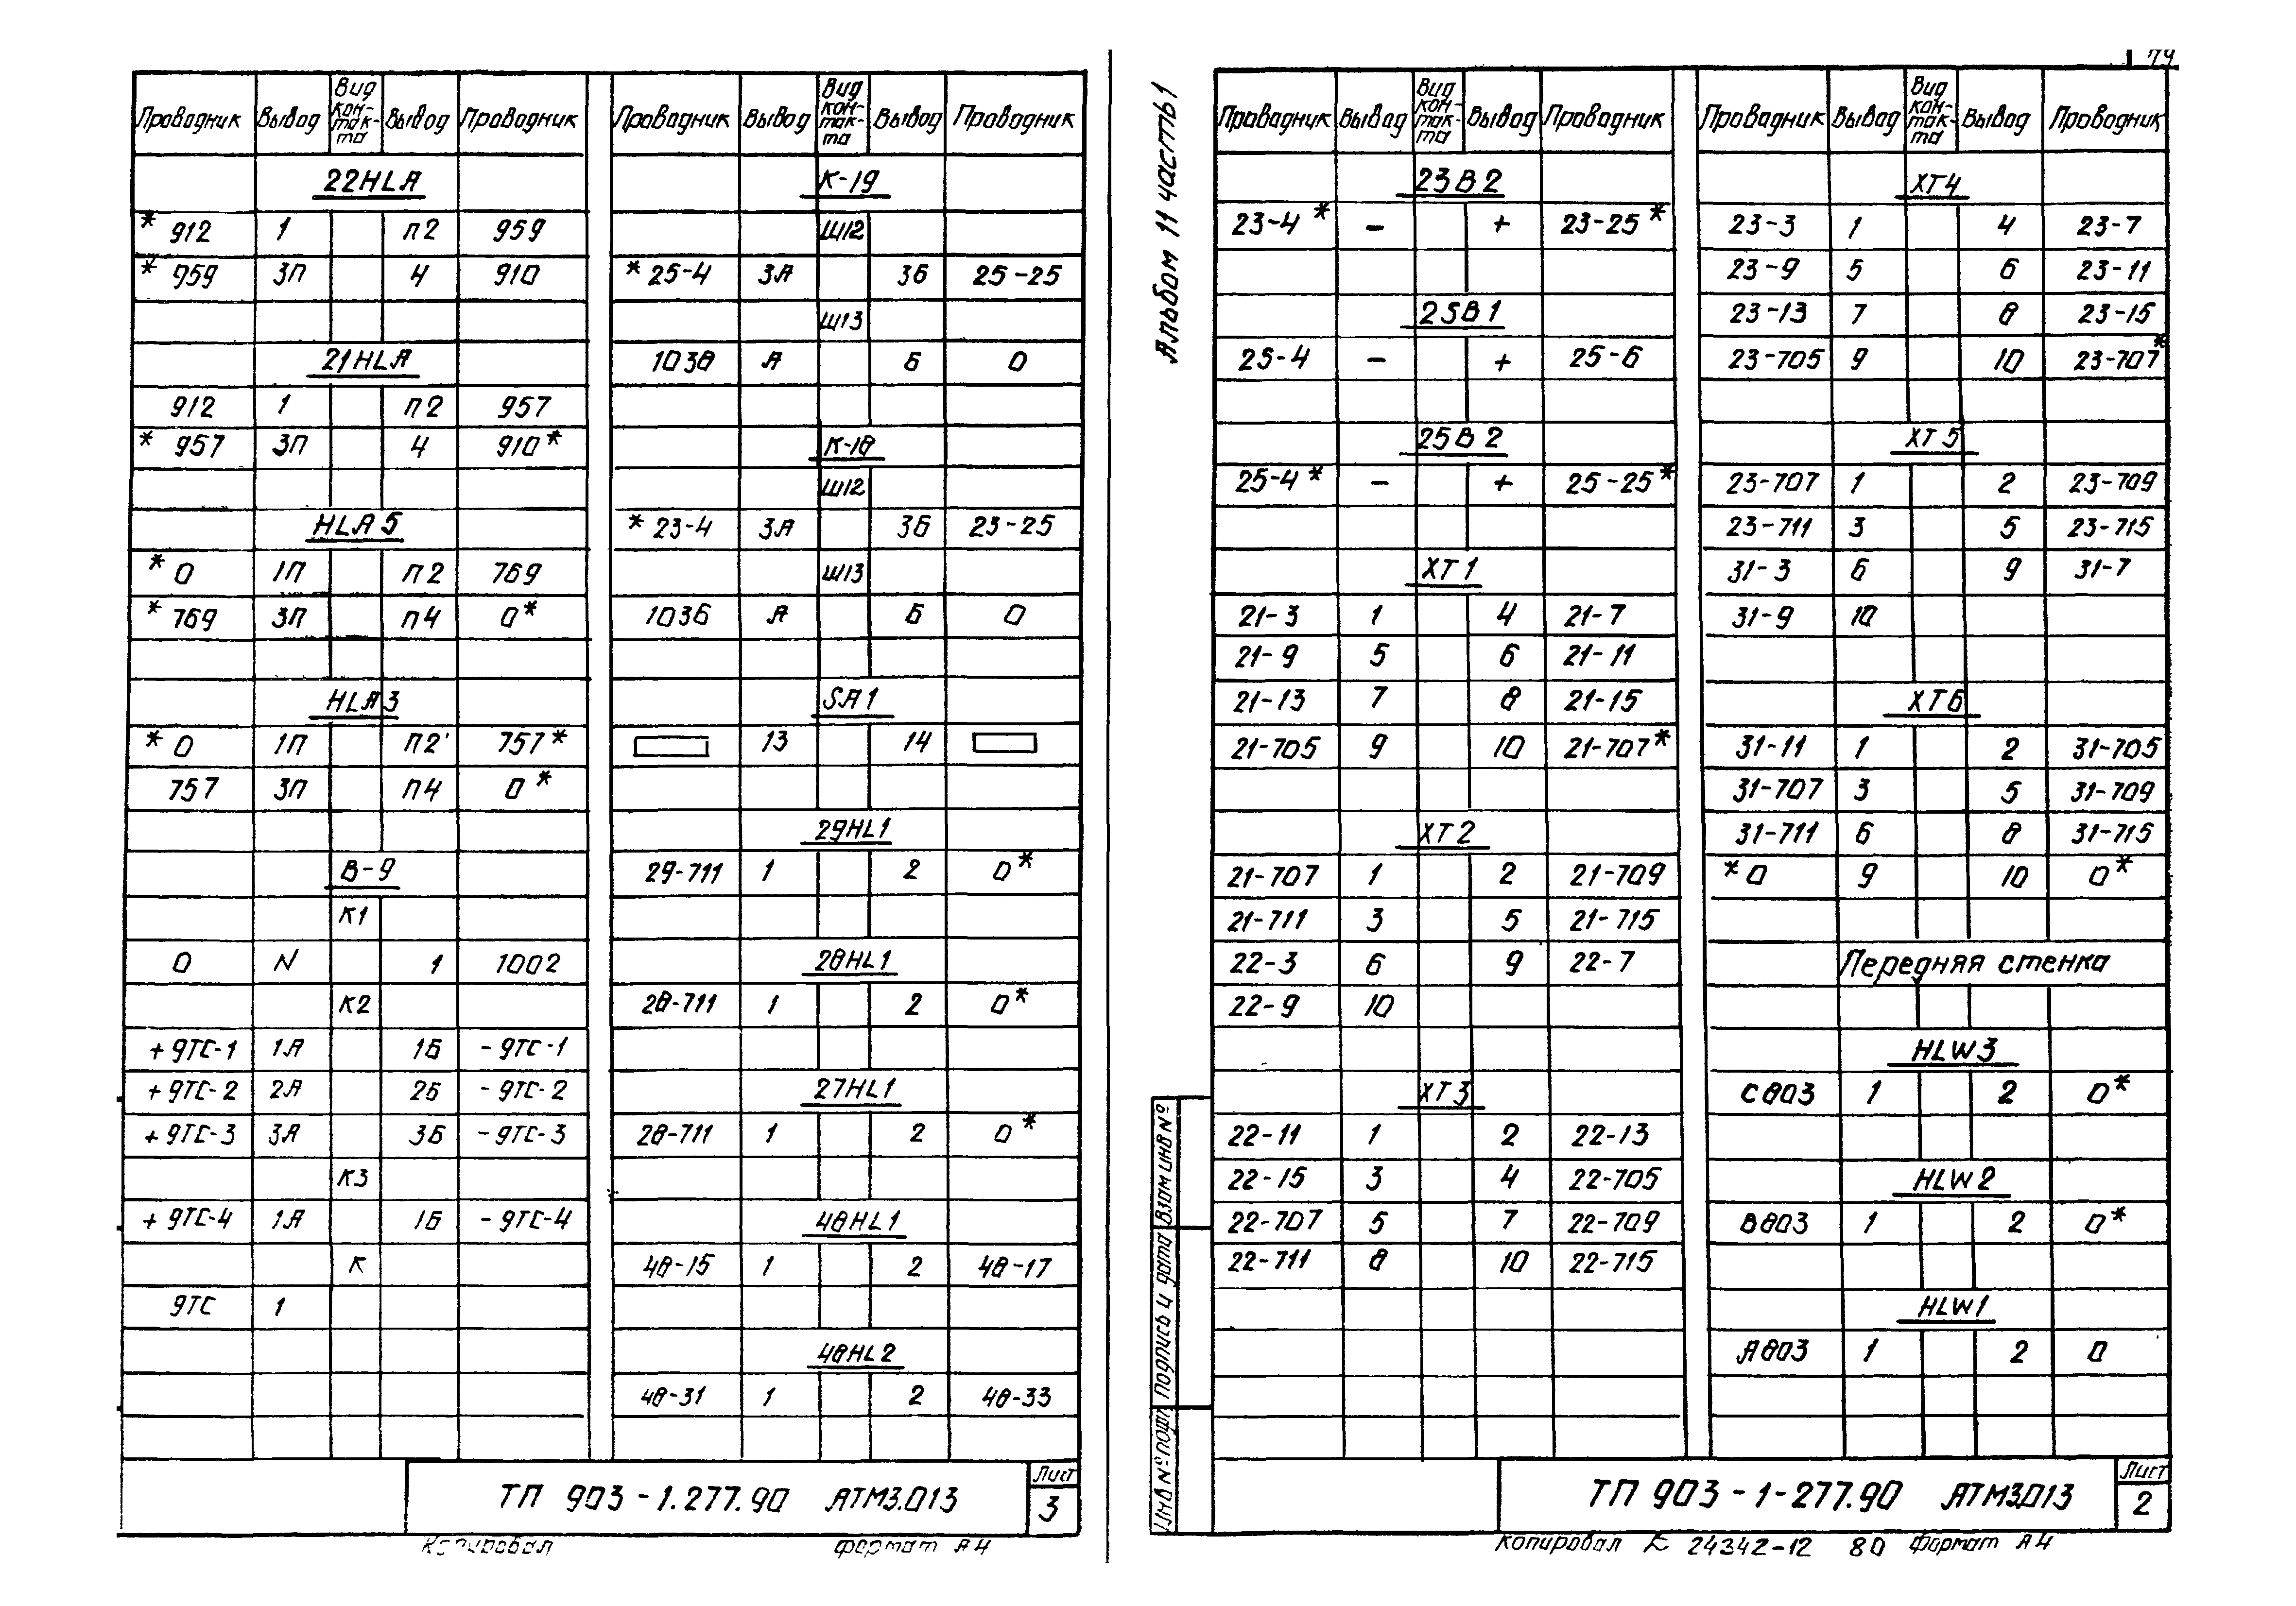 Проводник Вывод Вид кон-так-та Вывод Проводник
22HLA
*912 1 п2 959
*959 3П 4 910
21HLA
912 1 п2 957
*957 3П 4 910*
HLA5
*0 1П п2 769
*769 3П п4 0*
HLA3
*0 1П п2 757*
757 3П п4 0*
В-9
К1
0 N 1 1002
К2
+9ТС-1 1А 1Б -9ТС-1
+9ТС-2 2А 2Б -9ТС-2
+9ТС-3 3А 3Б -9ТС-3
К3
+9ТС-4 1А 1Б -9ТС-4
К
9ТС 1
Проводник Вывод Вид кон-так-та Вывод Проводник
К-19
Ш12
*25-4 3А 3Б 25-25
Ш13
1038 А Б 0
К-18
Ш12
*23-4 3А 3Б 23-25
Ш13
1036 А Б 0
SA1
13 14
29HL1
29-711 1 2 0*
28HL1
28-711 1 2 0*
27HL1
28-711 1 2 0*
48HL1
48-15 1 2 48-17
48HL2
48-31 1 2 48-33
ТП 903-1.277.90 АТМ3.013
Лист
3
Копировал формат А4
Альбом 11 часть1
74
Проводник Вывод Вид кон-так-та Вывод Проводник
23В2
23-4* - + 23-25*
25В1
25-4 - + 25-6
25В2
25-4* - + 25-25*
ХТ1
21-3 1 4 21-7
21-9 5 6 21-11
21-13 7 8 21-15
21-705 9 10 21-707*
ХТ2
21-707 1 2 21-709
21-711 3 5 21-715
22-3 6 9 22-7
22-9 10
ХТ3
22-11 1 2 22-13
22-15 3 4 22-705
22-707 5 7 22-709
22-711 8 10 22-715
Проводник Вывод Вид кон-так-та Вывод Проводник
ХТ4
23-3 1 4 23-7
23-9 5 6 23-11
23-13 7 8 23-15
23-705 9 10 23-707*
ХТ5
23-707 1 2 23-709
23-711 3 5 23-715
31-3 6 9 31-7
31-9 10
ХТ6
31-11 1 2 31-705
31-707 3 5 31-709
31-711 6 8 31-715
*0 9 10 0*
Передняя стенка
HLW3
С803 1 2 0*
HLW2
В803 1 2 0*
HLW1
А803 1 2 0
Инв № подл Подпись и дата Взам инв №
ТП 903-1-277.90 АТМ3.013
Лист
2
Копировал 24342-12 80 Формат А4